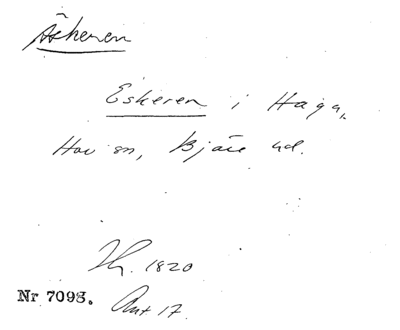 Äskeren
Eskeren i Haga,
Hov sn, Bjäre hd.
Jh. 1820
Nr 7098. Ant 17.